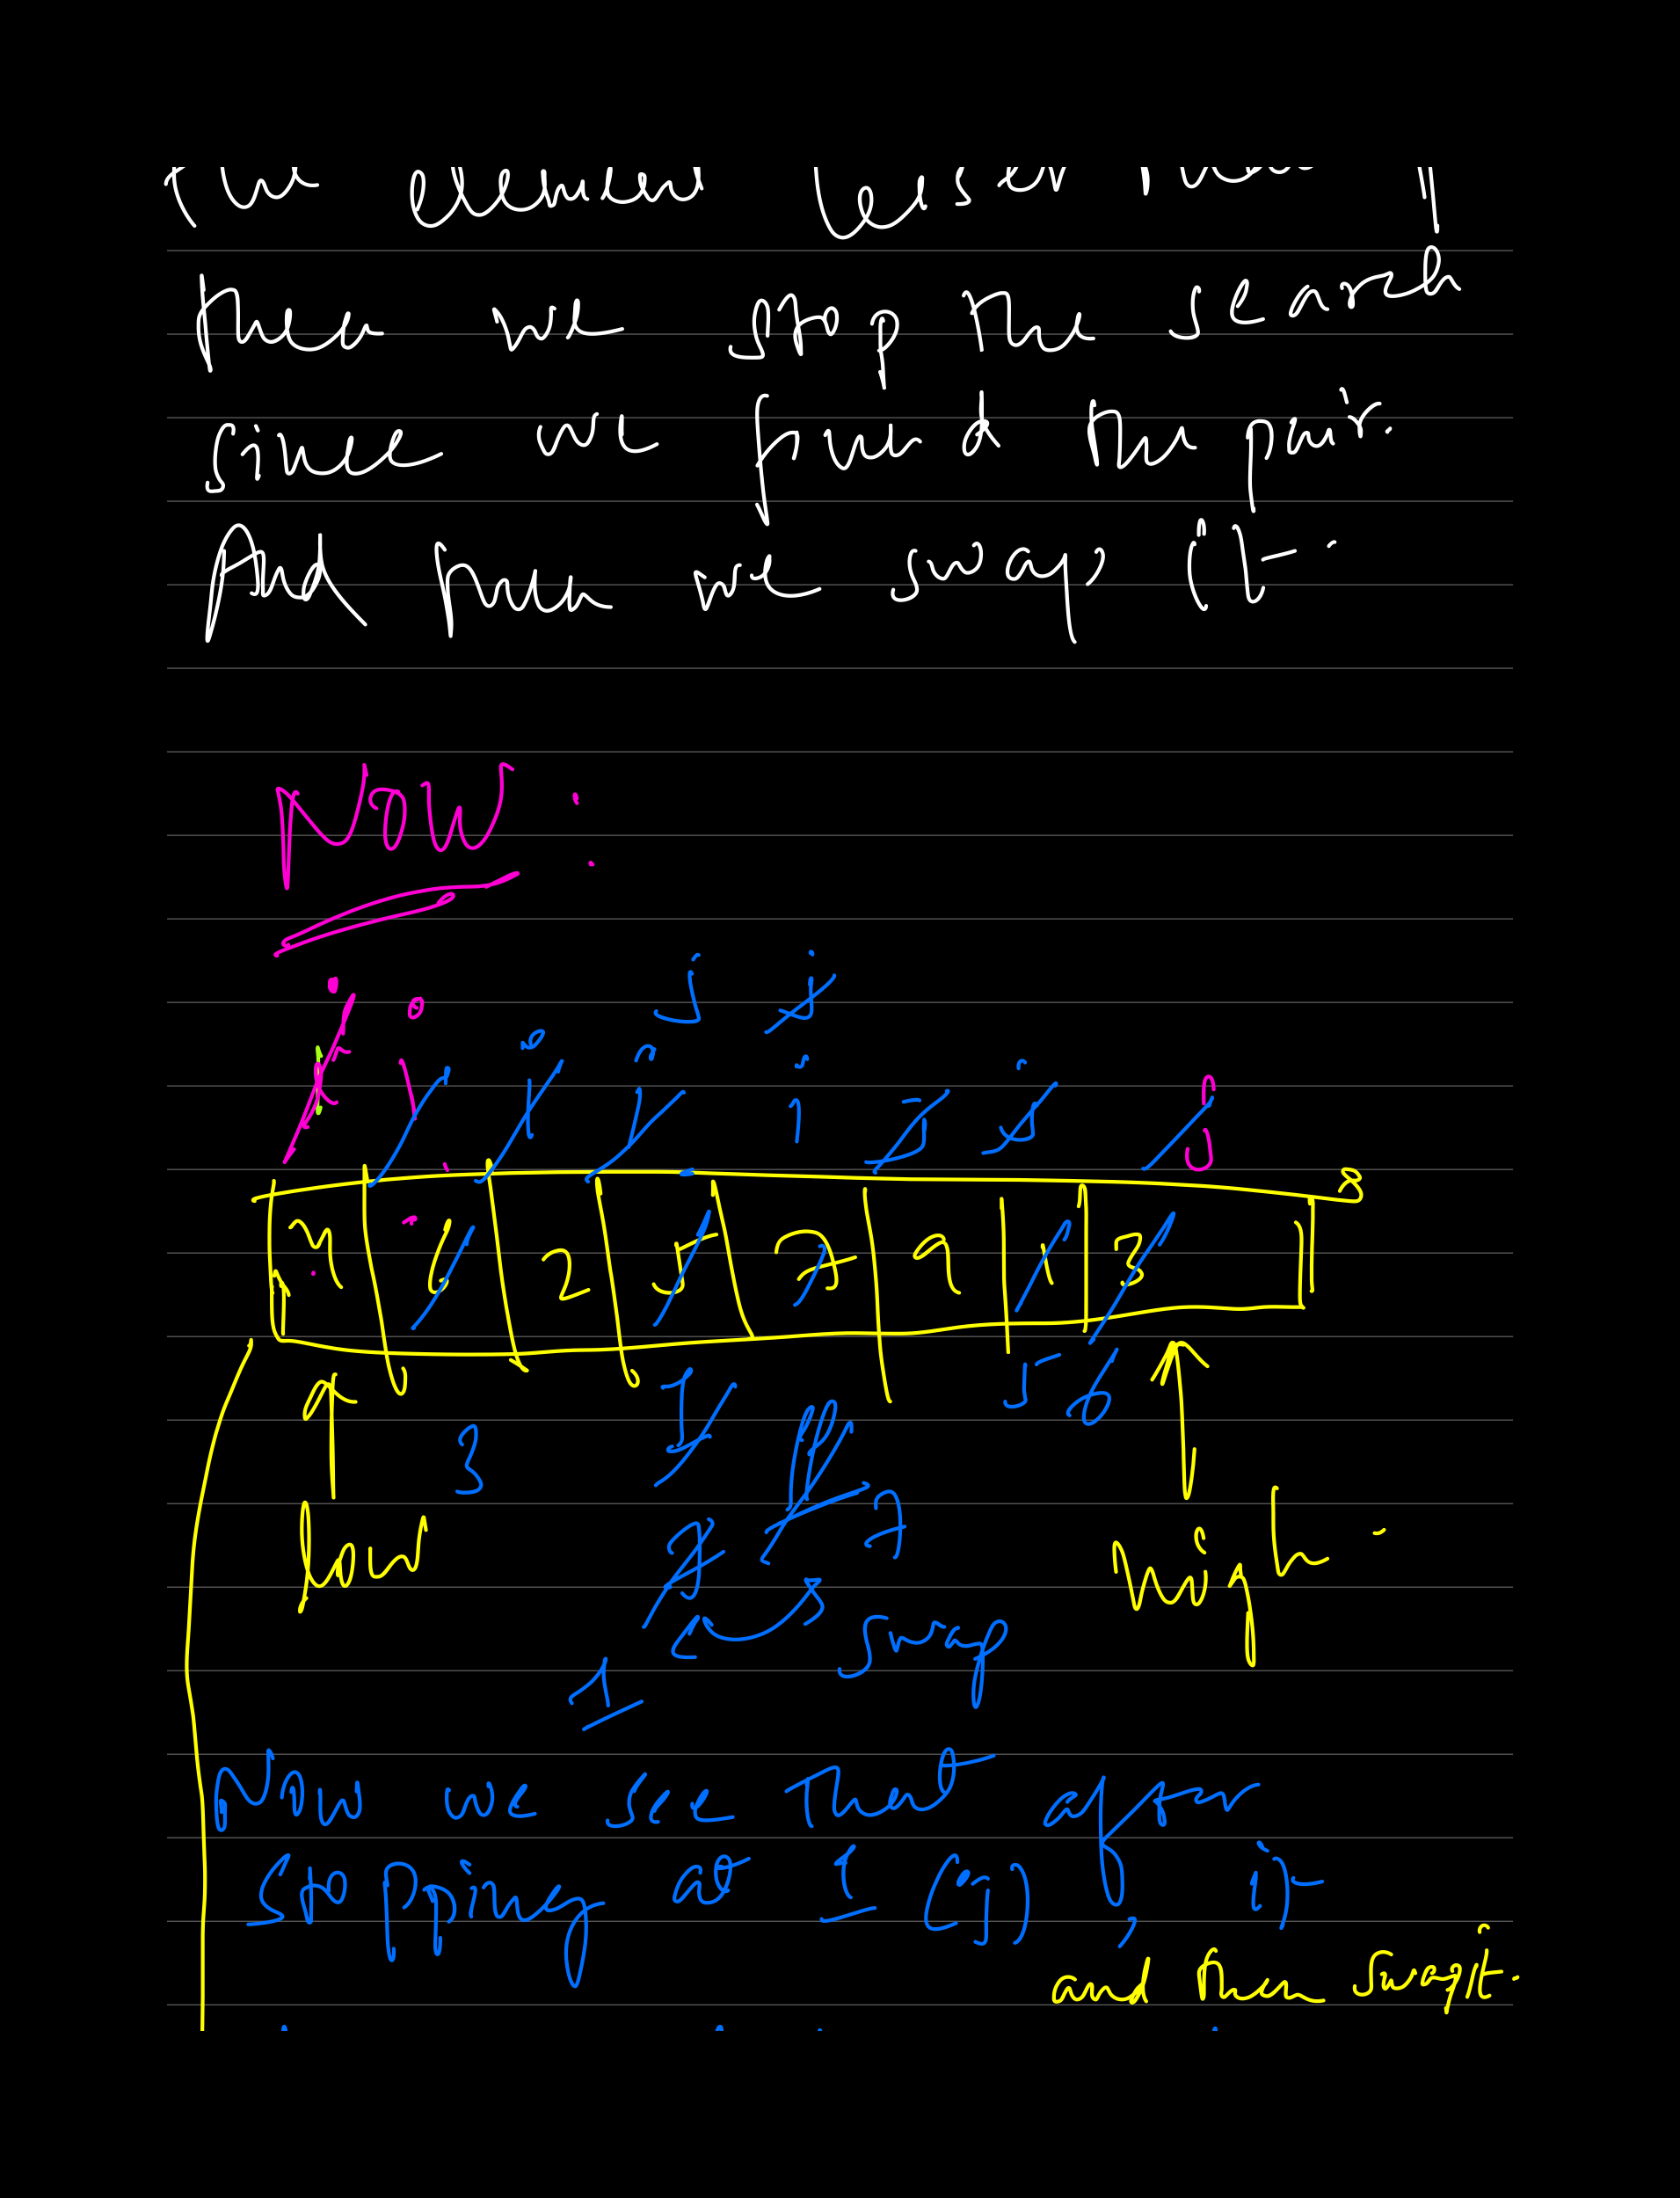 the element lesser than
then we stop the search
since we found the pair.
And then we swap it.
NOW:
j j
i i i i j j j
4 6 2 5 7 9 1 3
5 6
3 1
7 7
low high
swap
1
Now we see that after
stopping at 1 (j), it
and then swap it.